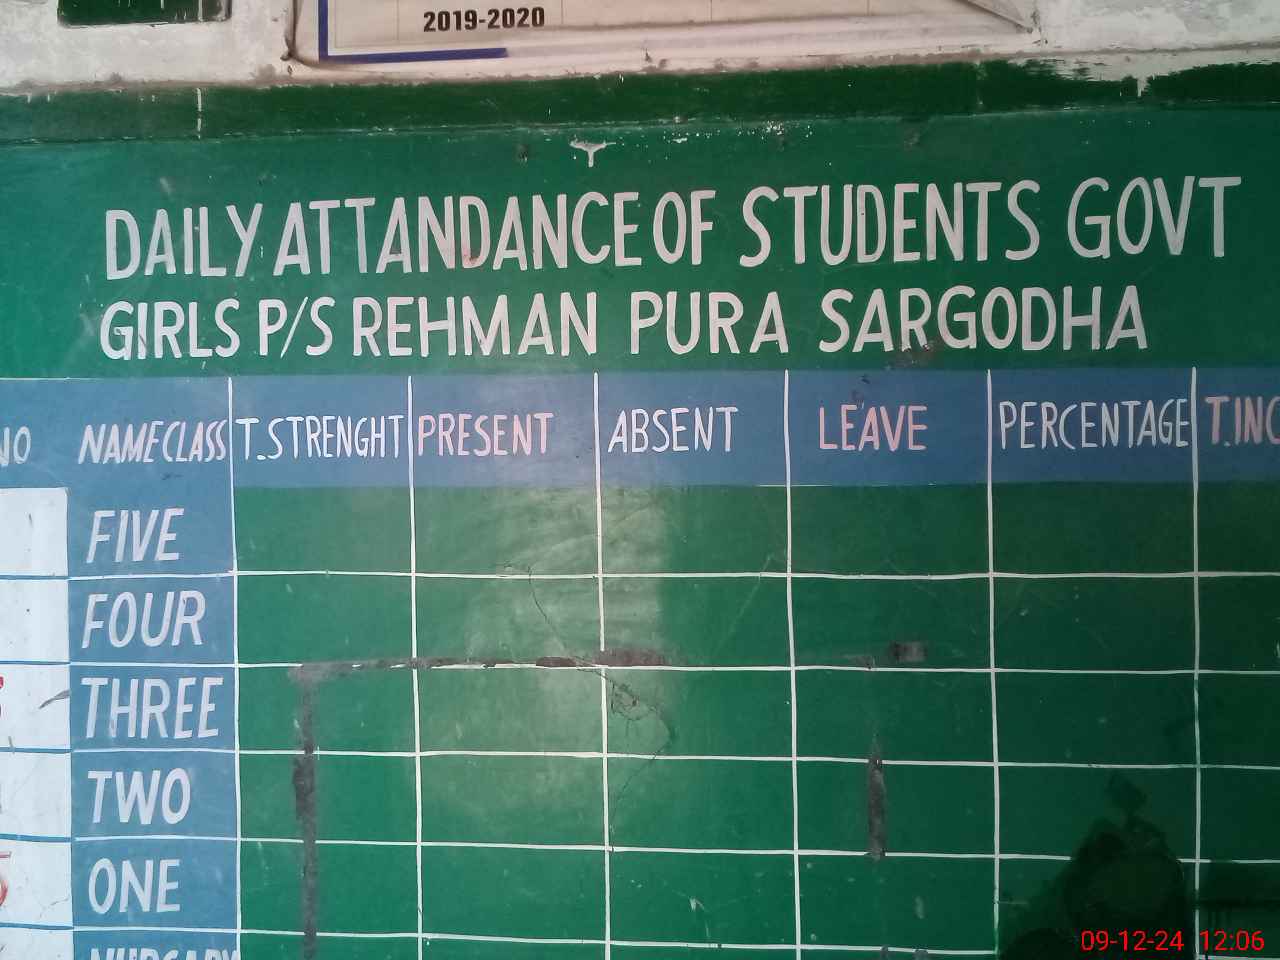 2019-2020
DAILY ATTANDANCE OF STUDENTS GOVT
GIRLS P/S REHMAN PURA SARGODHA
NO NAME CLASS T.STRENGHT PRESENT ABSENT LEAVE PERCENTAGE T.INC
FIVE
FOUR
THREE
TWO
ONE
09-12-24 12:06